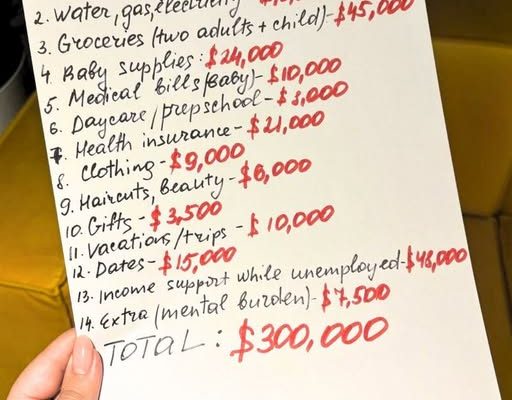 2. Water, gas, electricity
3. Groceries (two adults + child)-$45,000
4. Baby supplies: $24,000
5. Medical bills (baby)-$10,000
6. Daycare/prepschool-$3,000
7. Health insurance-$21,000
8. Clothing-$9,000
9. Haircuts, Beauty-$6,000
10. Gifts-$3,500
11. Vacations/trips-$10,000
12. Dates-$15,000
13. Income support while unemployed-$48,000
14. Extra (mental burden)-$7,500
TOTAL: $300,000